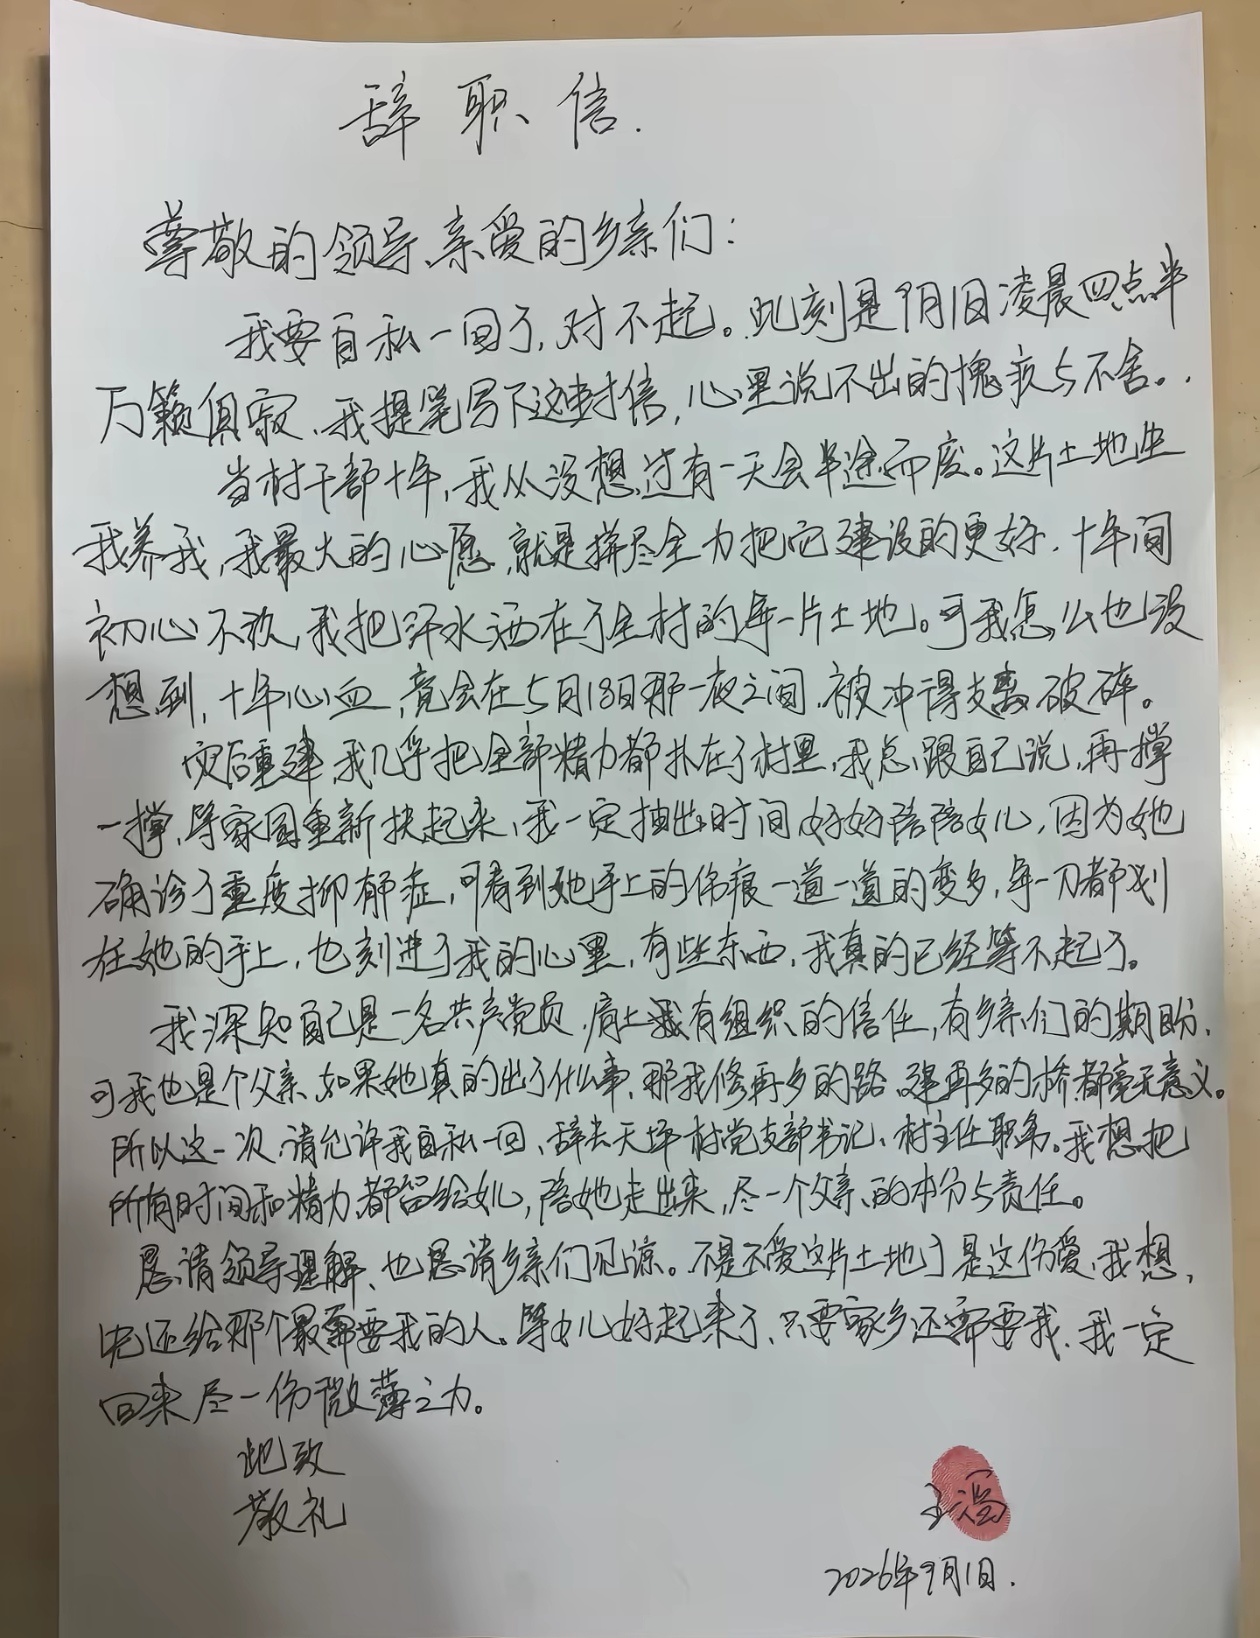 辞职信.
尊敬的领导、亲爱的乡亲们：
我要自私一回了,对不起。此刻是9月1日凌晨四点半
万籁俱寂、我提笔写下这封信,心里说不出的愧疚与不舍。
当村干部十年,我从没想过有一天会半途而废。这片土地生
我养我,我最大的心愿,就是拼尽全力把它建设的更好.十年间
初心不改,我把汗水洒在了全村的每一片土地。可我怎么也没
想到,十年心血,竟会在5月18日那一夜之间,被冲得支离破碎。
灾后重建,我几乎把全部精力都扑在了村里,我总跟自己说,再撑
一撑,等家园重新扶起来,我一定抽出时间好好陪陪女儿,因为她
确诊了重度抑郁症,可看到她手上的伤痕一道一道的变多,每一刀都划
在她的手上,也刻进了我的心里,有些东西,我真的已经等不起了。
我深知自己是一名共产党员,肩上有组织的信任,有乡亲们的期盼,
可我也是个父亲,如果她真的出了什么事,那我修再多的路,建再多的桥都毫无意义。
所以这一次,请允许我自私一回、辞去天坪村党支部书记、村主任职务。我想把
所有时间和精力,都留给女儿,陪她走出来,尽一个父亲的本分与责任。
恳请领导理解、也恳请乡亲们见谅。不是不爱这片土地了是这份爱,我想,
先还给那个最需要我的人。等女儿好起来了、只要家乡还需要我.我一定
回来尽一份微薄之力。
此致
敬礼
2026年9月1日.